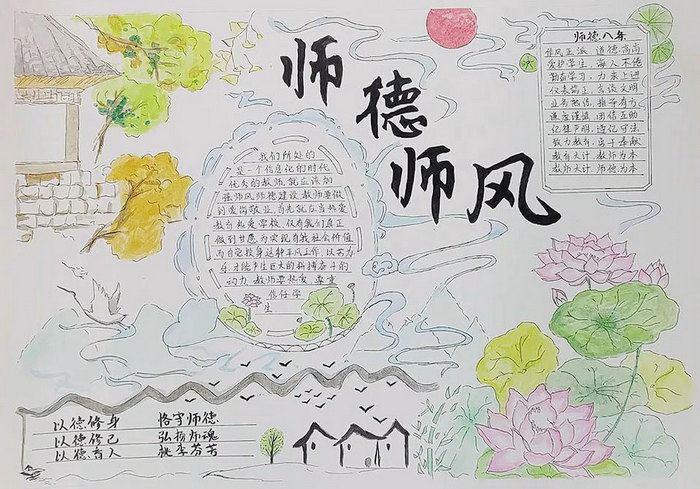 师德师风
师德八条
作风正派 道德高尚
爱护学生 诲人不倦
勤奋学习 力求上进
仪表端正 言谈文明
业务熟练 指导有力
团结互助
遵纪守法
致力教育 乐于奉献
教育大计 教师为本
教师大计 师德为本
我们所处的
是一个信息化的时代
优秀的教师就应该加
强师风师德建设教师要做
到爱岗敬业，首先就应当热爱
教育热爱学校，仅有我们真正
做到甘愿为实现自我社会价值
而自觉投身这种平凡工作，以苦为
乐才能产生巨大的拼搏奋斗的
动力，教师要热爱、尊重
信任学
生
以德修身 恪守师德
以德修己 弘扬师魂
以德育人 桃李芬芳